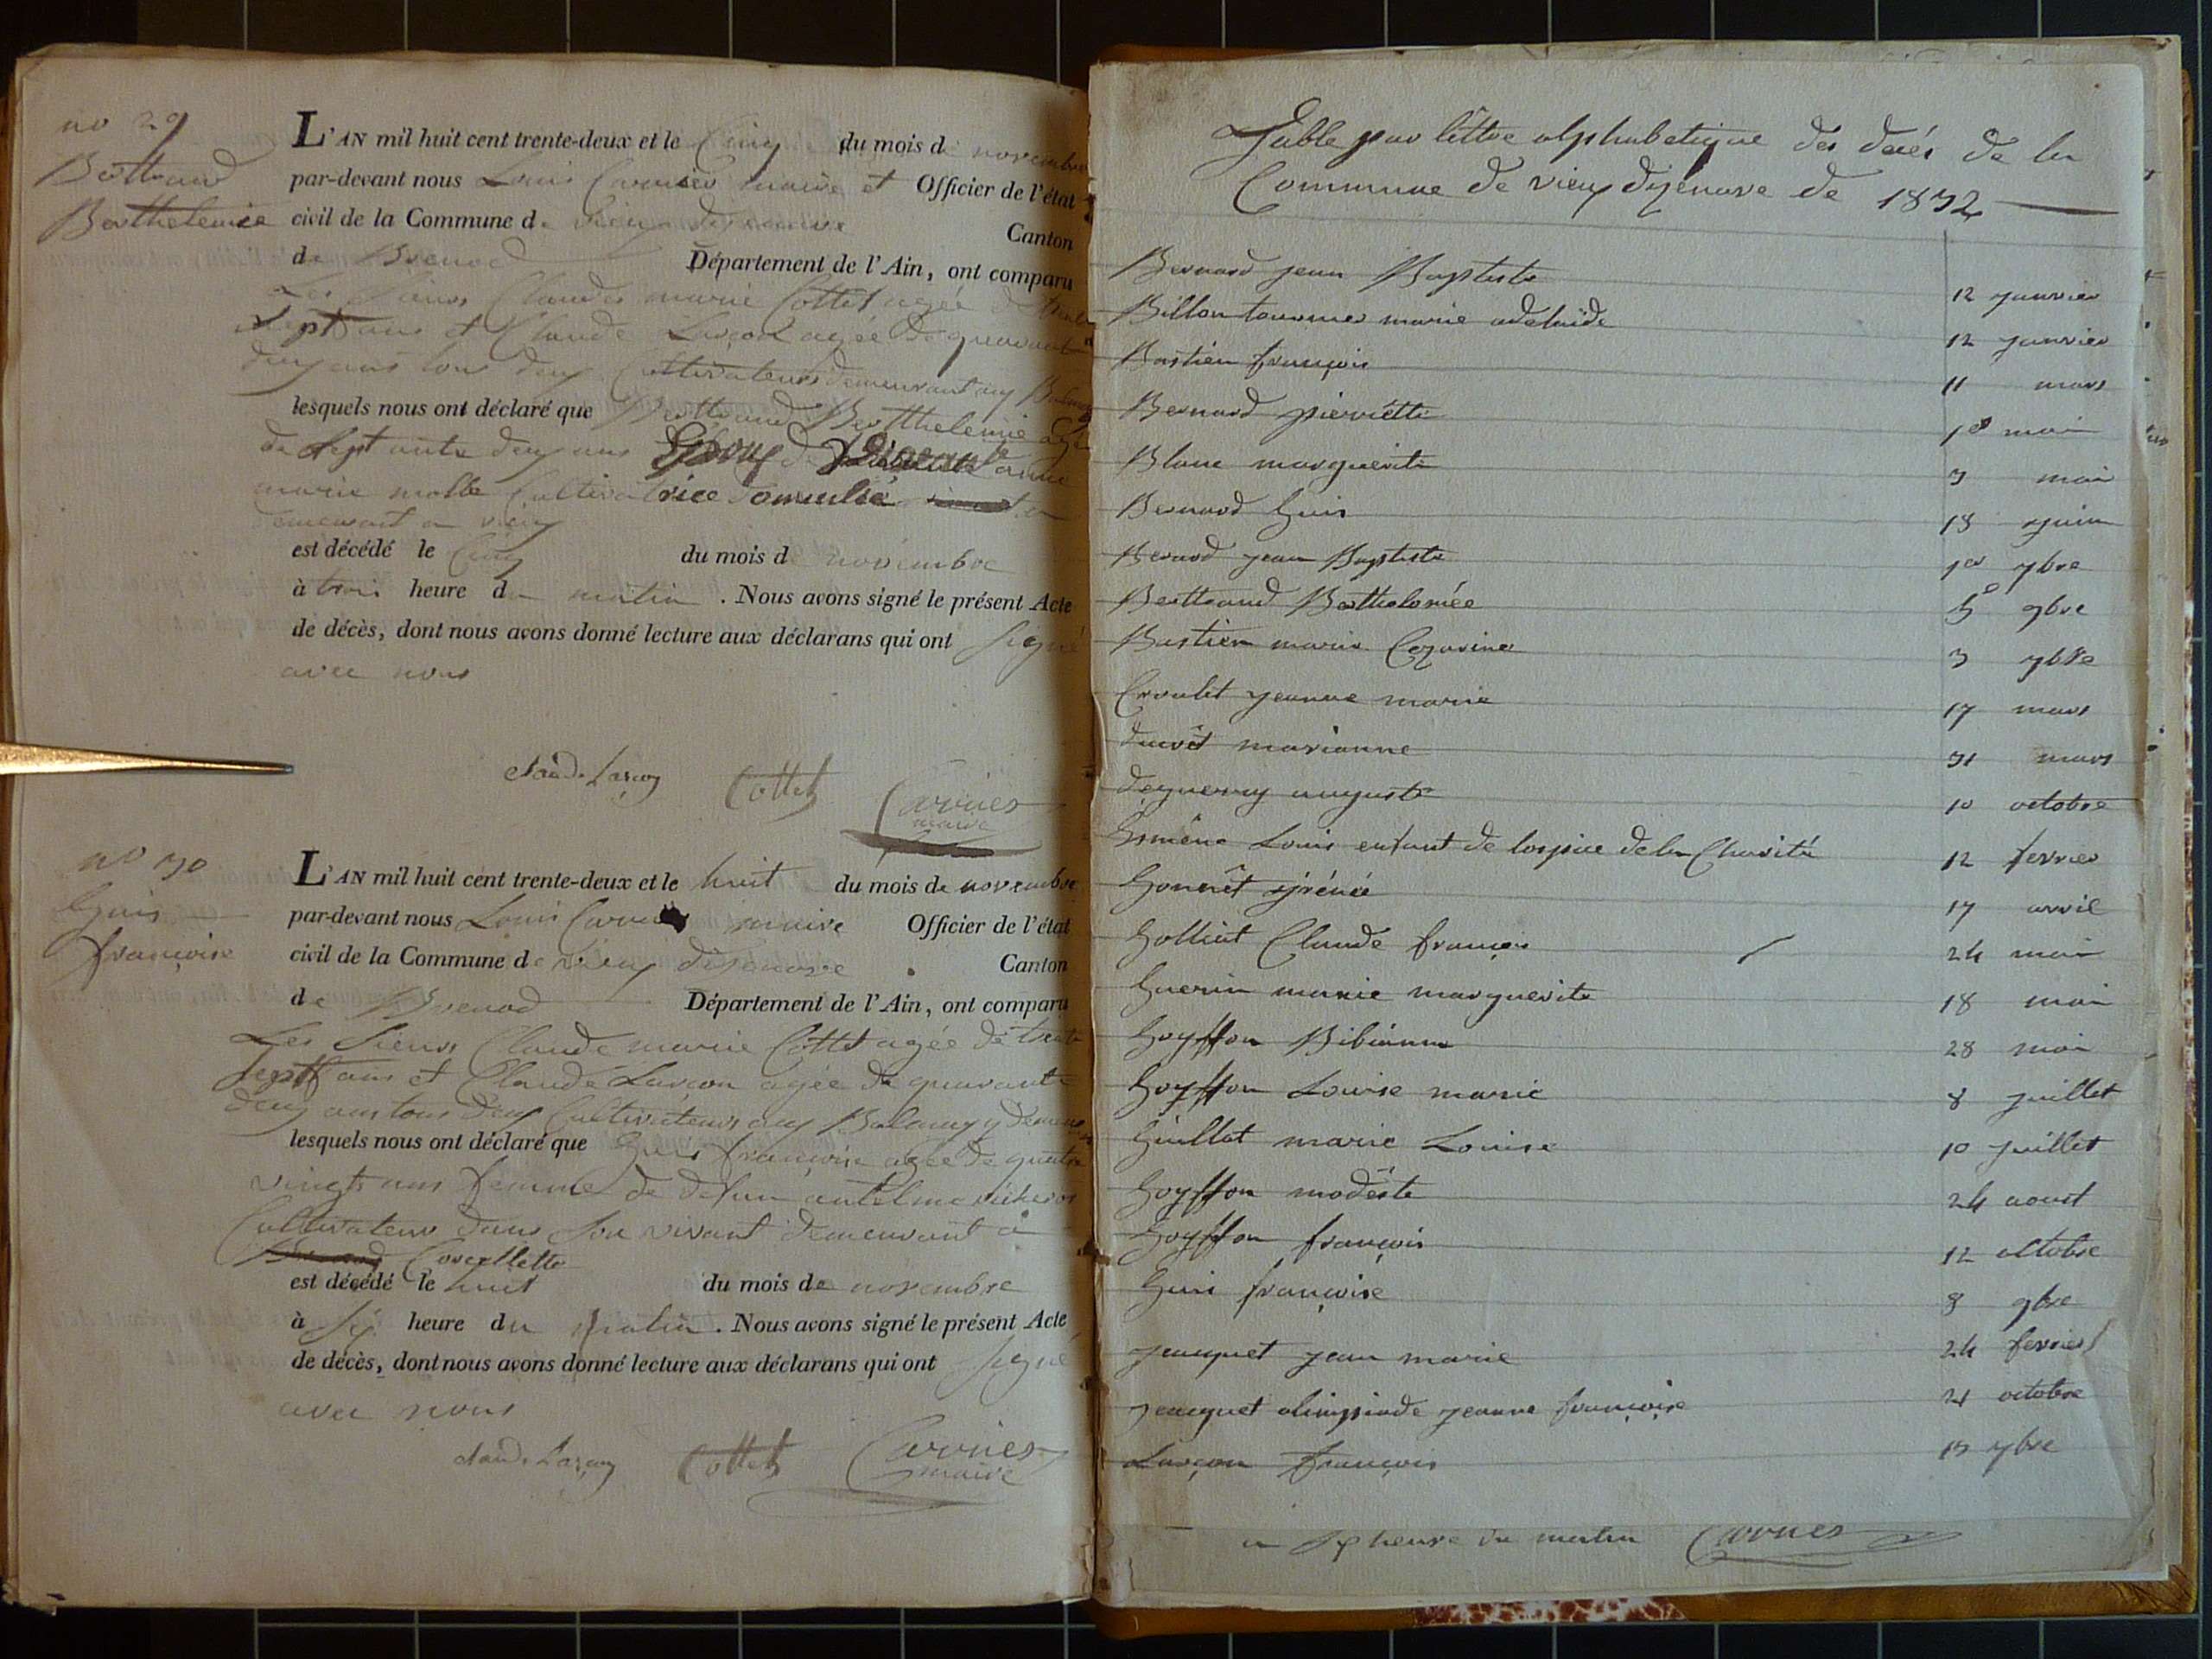 no 29
Berttrand
Berthelemie
L'AN mil huit cent trente-deux et le Cinq du mois de novembre
par-devant nous Louis Carrier maire et Officier de l'état
civil de la Commune de vieu dizenave Canton
de Brenod Département de l'Ain, ont comparu
Les sieurs Claude marie Cottet agée de trente
sept ans et Claude Larçon agée de quarante
deux ans tous deux Cultivateurs demeurant au
lesquels nous ont déclaré que Berttrand Berthelemie agé
de septante deux ans Epoux de anne
marie molle Cultivatrice
demeurant a vieu
est décédé le Cinq du mois de novembre
à trois heure du matin . Nous avons signé le présent Acte
de décès, dont nous avons donné lecture aux déclarans qui ont signé
avec nous
claude Larçon Cottet Carrier
maire
no 30
Guis
françoise
L'AN mil huit cent trente-deux et le huit du mois de novembre
par-devant nous Louis Carrier maire Officier de l'état
civil de la Commune de vieu dizenave Canton
de Brenod Département de l'Ain, ont comparu
Les sieurs Claude marie Cottet agée de trente
sept ans et Claude Larçon agée de quarante
deux ans tous deux Cultivateurs au Balmay y
lesquels nous ont déclaré que Guis françoise agée de quatre
vingts ans femme de defun antelme
Cultivateur dans son vivant demeurant à
Corcellette
est décédé le huit du mois de novembre
à six heure du matin . Nous avons signé le présent Acte
de décès, dont nous avons donné lecture aux déclarans qui ont signé
avec nous
claude Larçon Cottet Carrier
maire
Table par lettre alphabetique des decés de la
Commune de vieu dizenave de 1832
Bernard jean Baptiste 12 janvier
Billon tournier marie adelaïde 12 janvier
Bastien françois 11 mars
Bernard pierrette 1er mai
Blanc marguerite 3 mai
Bernard Guis 18 juin
Bernard jean Baptiste 1er 7bre
Berttrand Bertholomée 5 9bre
Bastien marie Cezarine 3 7bre
Croulet jeanne marie 17 mars
ducrêt marianne 31 mars
deguerry auguste 10 octobre
Louis enfant de lospice de la Charité 12 fevrier
Gonnêt irénée 17 avril
Golliat Claude françois 24 mai
Guerin marie marguerite 18 mai
Goyffon Bibianne 28 mai
Goyffon Louise marie 8 juillet
Guillot marie Louise 10 juillet
Goyffon modeste 24 aout
Goyffon françois 12 octobre
Guis françoise 8 9bre
jacquet jean marie 24 fevrier
jacquet olimpiade jeanne françoise 21 octobre
Larçon françois 13 7bre
a six heure du matin Carrier